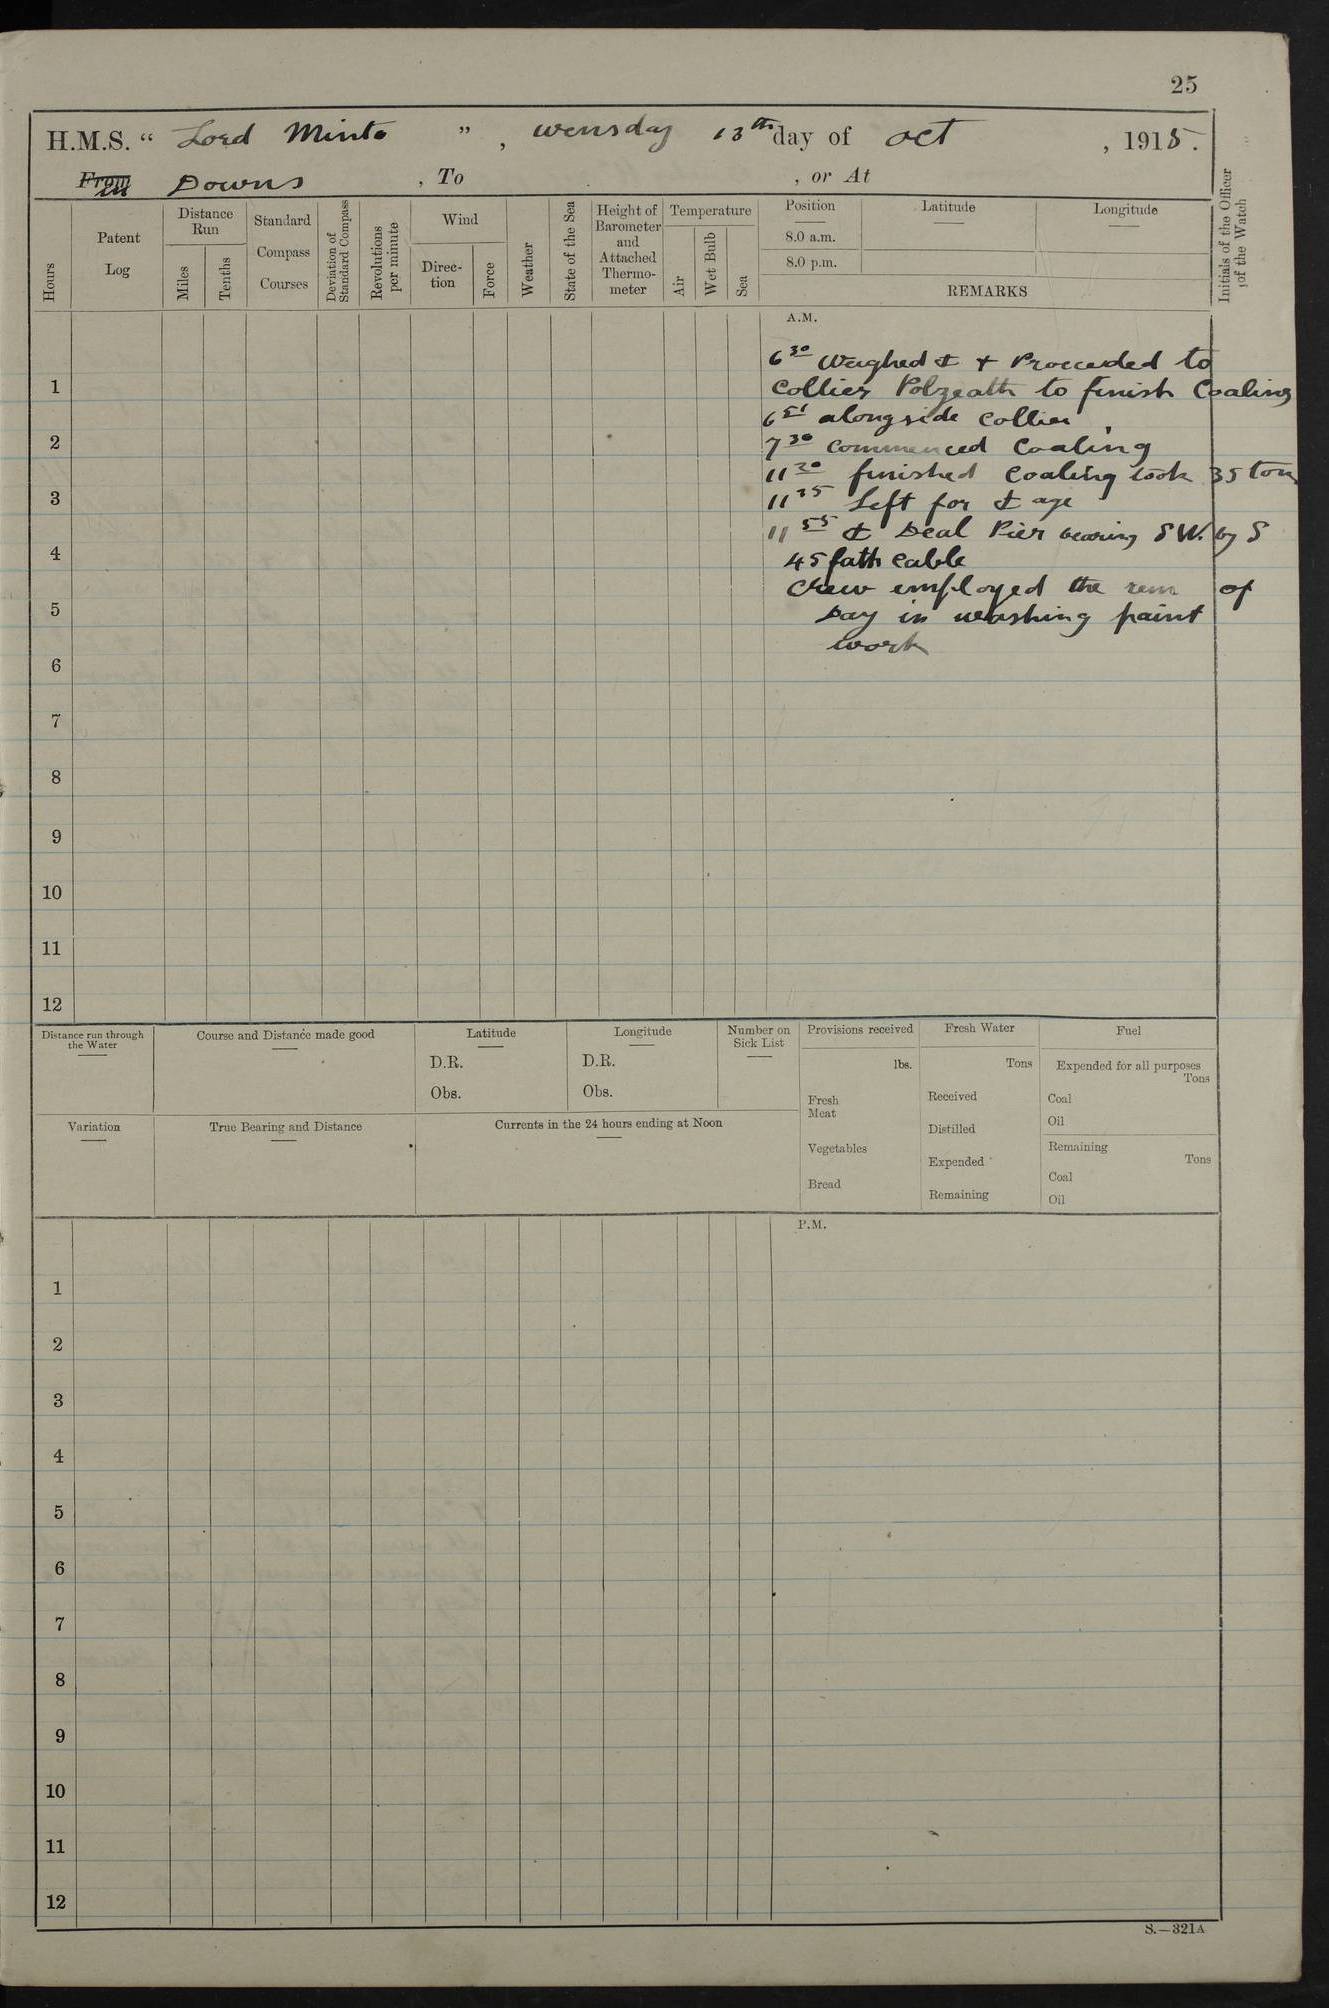 25
H.M.S. “ Lord Minto ”, wensday 13th day of oct , 1915.
From in Downs , To , or At
Hours
Patent Log
Distance Run
Miles
Tenths
Standard Compass Courses
Deviation of Standard Compass
Revolutions per minute
Wind
Direc-tion
Force
Weather
State of the Sea
Height of Barometer and Attached Thermo-meter
Temperature
Air
Wet Bulb
Sea
Position
8.0 a.m.
8.0 p.m.
Latitude
Longitude
REMARKS
Initials of the Officer of the Watch
A.M.
6 30 weighed ⚓ + Proceeded to
1 Collier Polzeath to finish Coaling
6 51 alongside Collier
2 7 30 commenced Coaling
11 30 finished Coaling took 35 tons
3 11 35 Left for ⚓ age
11 55 ⚓ Deal Pier bearing SW. by S
4 45 fath cable
Crew employed the rem of
5 Day in washing paint
6 work
7
8
9
10
11
12
Distance run through the Water
Course and Distance made good
Latitude
D.R.
Obs.
Longitude
D.R.
Obs.
Number on Sick List
Provisions received
lbs.
Fresh Meat
Vegetables
Bread
Fresh Water
Tons
Received
Distilled
Expended
Remaining
Fuel
Expended for all purposes
Tons
Coal
Oil
Remaining
Tons
Coal
Oil
Variation
True Bearing and Distance
Currents in the 24 hours ending at Noon
P.M.
1
2
3
4
5
6
7
8
9
10
11
12
S.—321A